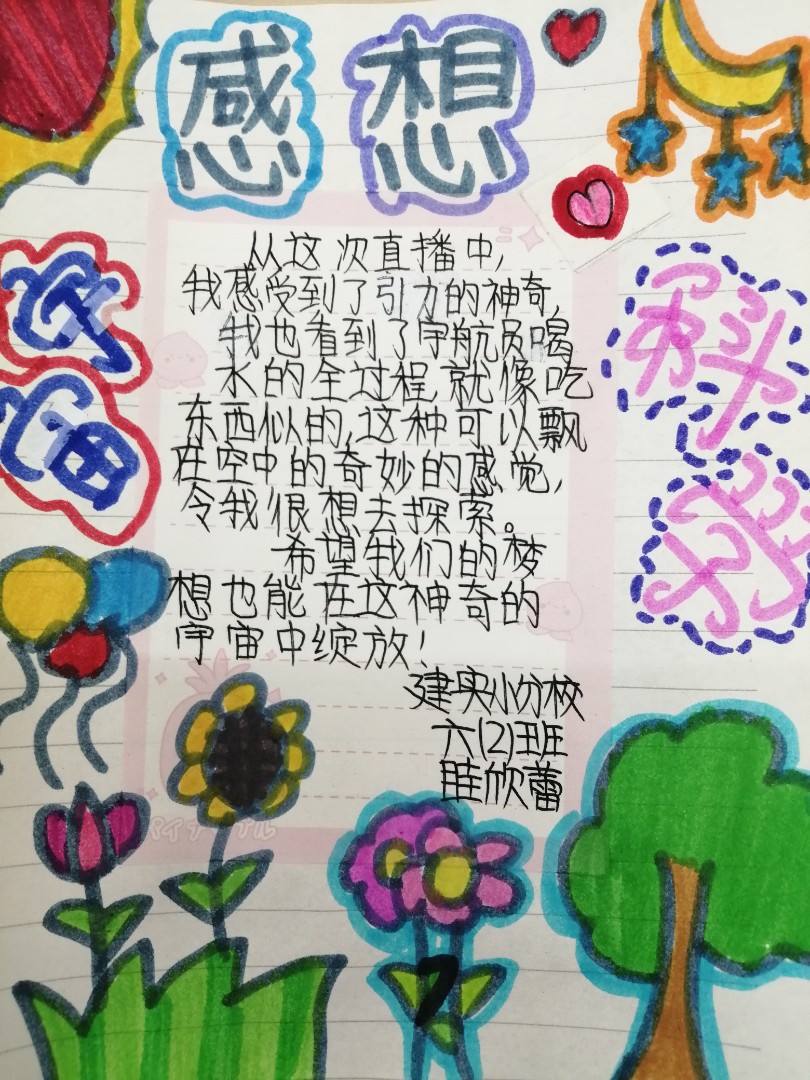 感想
宇宙
科学
从这次直播中,
我感受到了引力的神奇,
我也看到了宇航员喝
水的全过程就像吃
东西似的,这种可以飘
在空中的奇妙的感觉,
令我很想去探索。
希望我们的梦
想也能在这神奇的
宇宙中绽放!
建实小分校
六(2)班
眭欣蕾
パイナップル